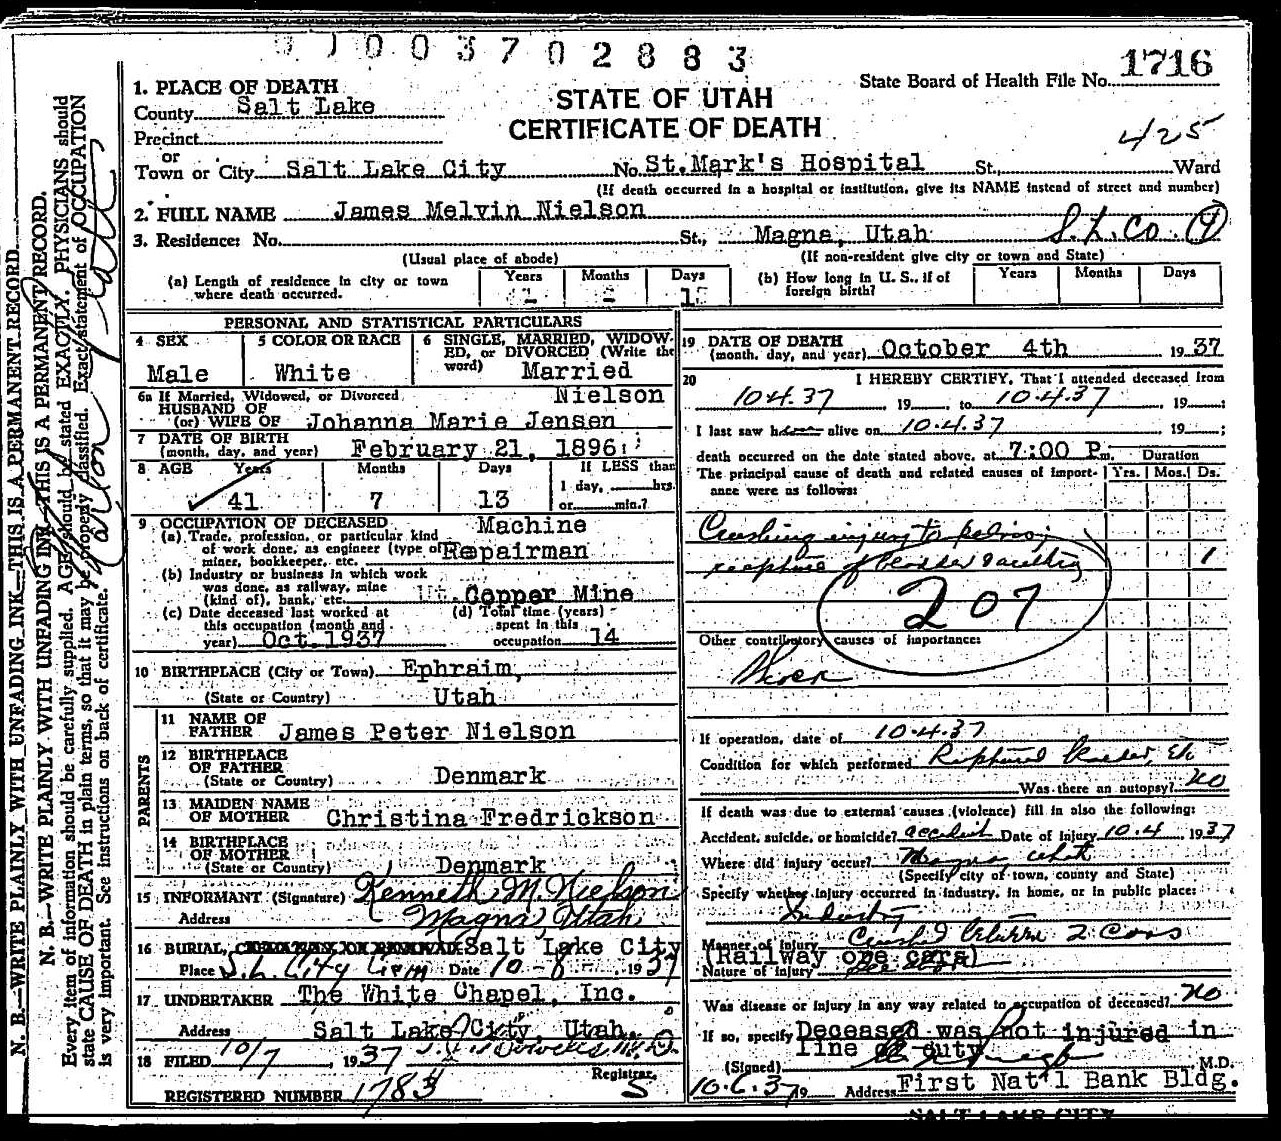 01003702883
1716
State Board of Health File No.
1. PLACE OF DEATH
County Salt Lake
STATE OF UTAH
CERTIFICATE OF DEATH
Precinct
425
or
Town or City Salt Lake City No. St.Mark's Hospital St., Ward
(If death occurred in a hospital or institution, give its NAME instead of street and number)
2. FULL NAME James Melvin Nielson
3. Residence: No. St., Magna, Utah S.L.Co.
(Usual place of abode) (If non-resident give city or town and State)
(a) Length of residence in city or town where death occurred. Years Months Days
(b) How long in U. S., if of foreign birth? Years Months Days
PERSONAL AND STATISTICAL PARTICULARS
4 SEX Male
5 COLOR OR RACE White
6 SINGLE, MARRIED, WIDOWED, or DIVORCED (Write the word) Married
6a If Married, Widowed, or Divorced Nielson
HUSBAND OF
(or) WIFE OF Johanna Marie Jensen
7 DATE OF BIRTH
(month, day, and year) February 21, 1896
8 AGE Years 41 Months 7 Days 13 If LESS than 1 day, hrs. or min.?
9 OCCUPATION OF DECEASED Machine
(a) Trade, profession, or particular kind
of work done, as engineer (type of Repairman
miner, bookkeeper, etc.
(b) Industry or business in which work
was done, as railway, mine
(kind of), bank, etc. Ut. Copper Mine
(c) Date deceased last worked at this occupation (month and year) Oct.1937
(d) Total time (years) spent in this occupation 14
10 BIRTHPLACE (City or Town) Ephraim,
(State or Country) Utah
PARENTS
11 NAME OF FATHER James Peter Nielson
12 BIRTHPLACE OF FATHER
(State or Country) Denmark
13 MAIDEN NAME OF MOTHER Christina Fredrickson
14 BIRTHPLACE OF MOTHER
(State or Country) Denmark
15 INFORMANT (Signature) Kenneth M. Nielson
Address Magna, Utah
16 BURIAL, Salt Lake City
Place S.L. City Cem Date 10-8- 1937
17 UNDERTAKER The White Chapel, Inc.
Address Salt Lake City, Utah.
18 FILED 10/7, 1937 M.D.
Registrar.
REGISTERED NUMBER 1783
S
19 DATE OF DEATH
(month, day, and year) October 4th 1937
20 I HEREBY CERTIFY, That I attended deceased from
10.4.37, 19, to 10.4.37, 19;
I last saw h alive on 10.4.37 19;
death occurred on the date stated above, at 7:00 P.m. Duration
The principal cause of death and related causes of importance were as follows: Yrs. Mos. Ds.
Crushing injury to pelvis;
rupture of bladder & urethra 1
207
Other contributory causes of importance:
If operation, date of 10.4.37
Condition for which performed Ruptured bladder, Etc
Was there an autopsy? no
If death was due to external causes (violence) fill in also the following:
Accident, suicide, or homicide? accident Date of injury 10.4, 1937
Where did injury occur? Magna, Utah
(Specify city of town, county and State)
Specify whether injury occurred in industry, in home, or in public place:
Industry
Manner of injury Crushed between 2 cars
(Railway ore cars)
Nature of injury
Was disease or injury in any way related to occupation of deceased? no
If so, specify Deceased was not injured in
line of duty
(Signed) M.D.
10.6.37 19 Address First Nat'l Bank Bldg.
SALT LAKE CITY
N. B.—WRITE PLAINLY WITH UNFADING INK—THIS IS A PERMANENT RECORD.
N. B.—WRITE PLAINLY WITH UNFADING INK—THIS IS A PERMANENT RECORD.
Every item of information should be carefully supplied. AGE should be stated EXACTLY. PHYSICIANS should
state CAUSE OF DEATH in plain terms, so that it may be properly classified. Exact statement of OCCUPATION
is very important. See instructions on back of certificate.